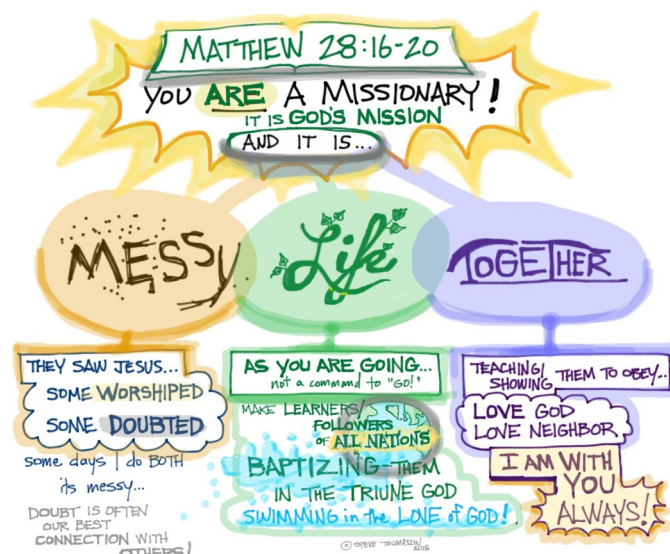 MATTHEW 28:16-20
YOU ARE A MISSIONARY!
IT IS GOD'S MISSION
AND IT IS...
MESSY
Life
TOGETHER
THEY SAW JESUS...
SOME WORSHIPED
SOME DOUBTED
some days I do BOTH
its messy...
DOUBT IS OFTEN
OUR BEST
CONNECTION WITH
OTHERS!
AS YOU ARE GOING...
not a command to "GO!"
MAKE LEARNERS/
FOLLOWERS
OF ALL NATIONS
BAPTIZING THEM
IN THE TRIUNE GOD
SWIMMING in the LOVE of GOD!
© STEVE THOMASON
2015
TEACHING/
SHOWING THEM TO OBEY...
LOVE GOD
LOVE NEIGHBOR
I AM WITH
YOU
ALWAYS!